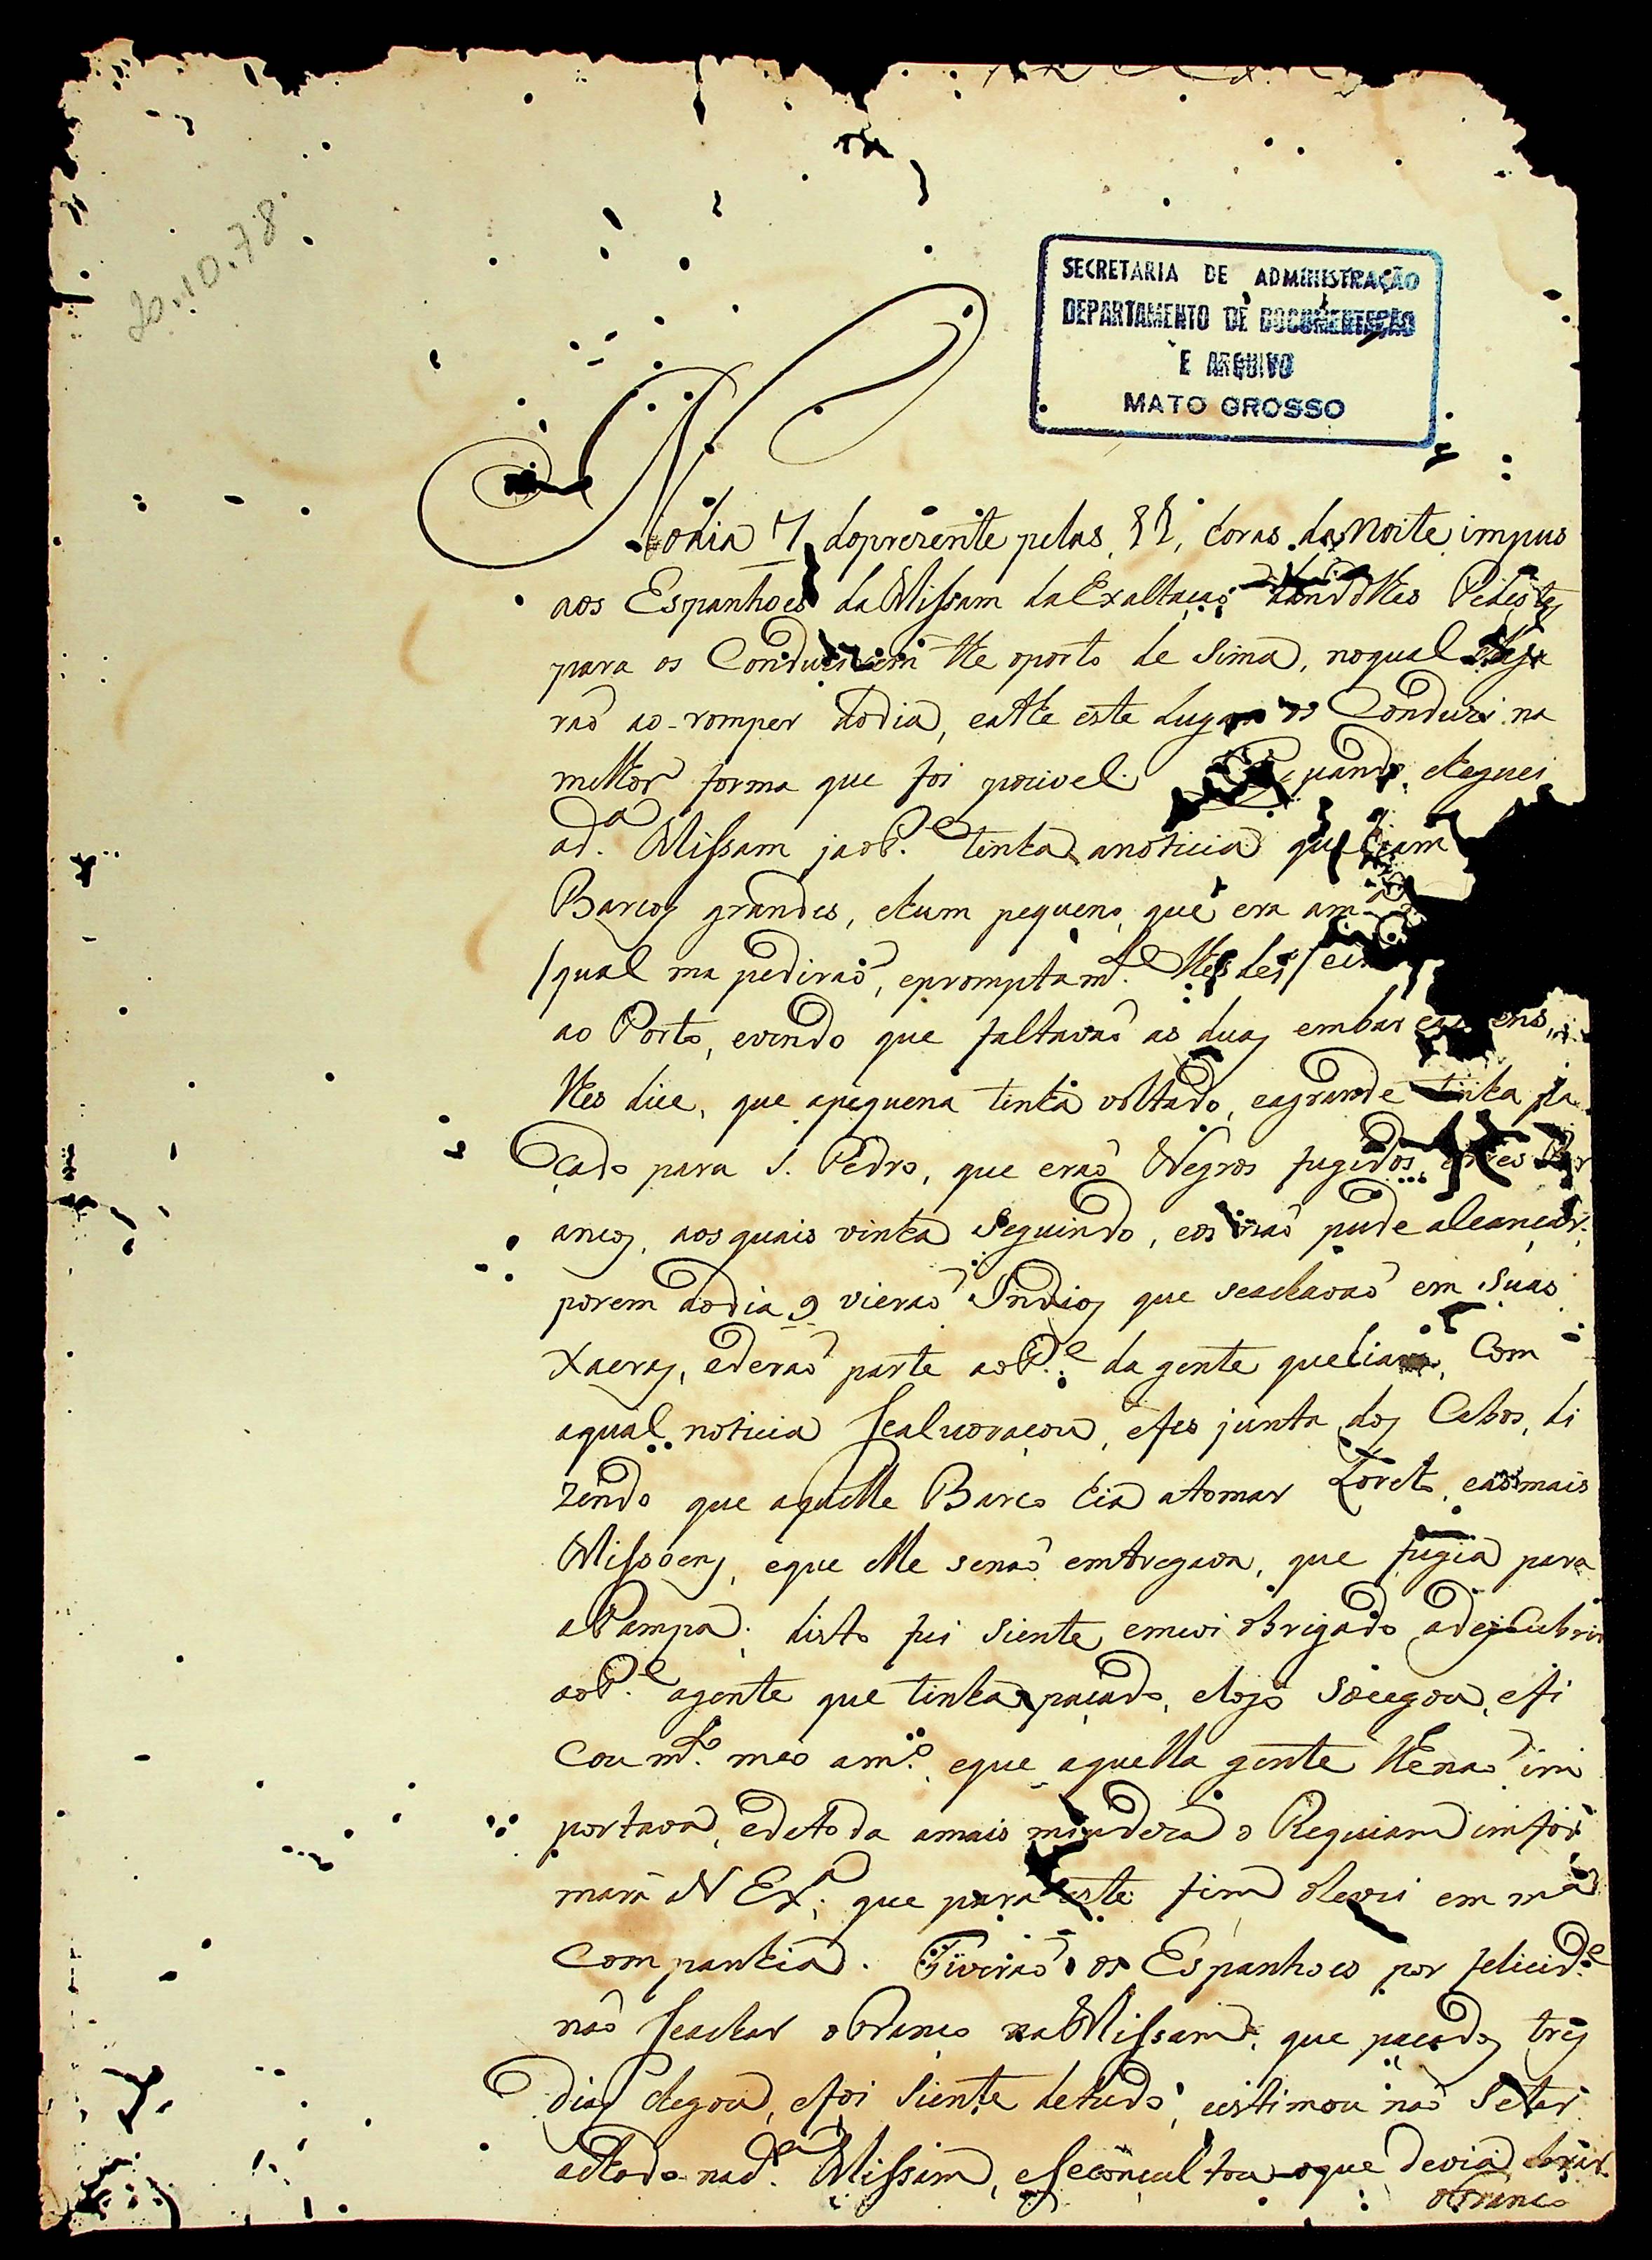 20.10.78
SECRETARIA DE ADMINISTRAÇÃO
DEPARTAMENTO DE DOCUMENTAÇÃO
E ARQUIVO
MATO GROSSO
Nodia 7 doprezente pelas 11, horas da Noite impus
aos Espanhoes da Missam da Exaltação dandolhes Pedestes
para os Conduzirem the oporto de Sima, noqual
raõ ao romper dodia, eathe este Lugar os Conduzi na
melhor forma que foi pocivel. Quando cheguei
ad.ª Missam jaoP.e tinha anoticia que hiam
Barcos grandes, ehum pequeno, que era am
/qual ma pediraõ, epromptam.e lhes dei/
ao Porto, evendo que faltavaõ as duas embarcasoens,
lhes dice, que apequena tinha voltado, eagrande tinha pa
çado para S. Pedro, que eraõ Negros fugidos,
ancos, aosquais vinha Seguindo, eos naõ pude alcançar.
porem nodia 9 vieraõ Indios que seachavaõ em suas
Xacras, ederaõ parte aoP.e da gente quehia, Com
aqual noticia Sealvoraçou, efes junta dos Cabos, di
zendo que aquelle Barco hia atomar Loreto, eaõmais
Missoens, eque elle senaõ emtregava, que fugia para
aPampa; disto fui siente, emevi obrigado adesCubrir
aoP.e agente que tinha paçado, elogo socegou, efi
cou m.to meo am.o eque aquella gente lhenaõ im
portava, edetoda amais miudeza o Requiam imfor
mará aV Ex.ª que para este fim olevei em m.ª
companhia. Tiveraõ os Espanhoes por felicid.e
naõ Seachar oBranco naMissam, que pacados tres
dias chegou, efoi siente detudo, eestimou naõ seter
achado nad.ª Missam, eSeconcultou oque devia obrar
oBranco